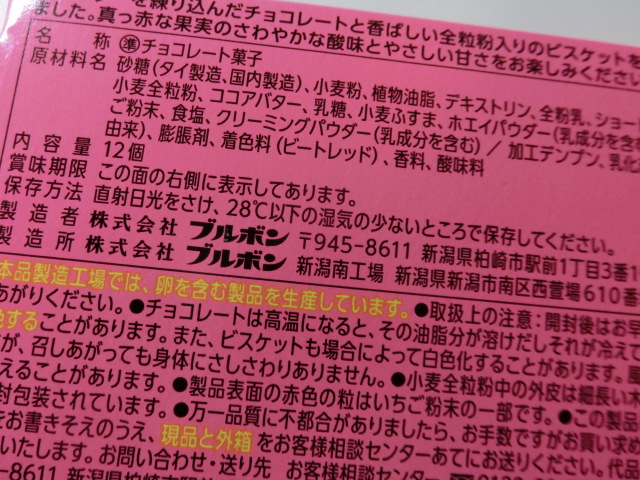 を練り込んだチョコレートと香ばしい全粒粉入りのビスケットを
ました。真っ赤な果実のさわやかな酸味とやさしい甘さをお楽しみくださ
名 称 準チョコレート菓子
原材料名 砂糖(タイ製造、国内製造)、小麦粉、植物油脂、デキストリン、全粉乳、ショー
小麦全粒粉、ココアバター、乳糖、小麦ふすま、ホエイパウダー(乳成分を含
ご粉末、食塩、クリーミングパウダー(乳成分を含む) / 加工デンプン、乳化
由来)、膨脹剤、着色料(ビートレッド)、香料、酸味料
内 容 量 12個
賞味期限 この面の右側に表示してあります。
保存方法 直射日光をさけ、28℃以下の湿気の少ないところで保存してください。
製 造 者 株式会社 ブルボン 〒945-8611 新潟県柏崎市駅前1丁目3番1
製 造 所 株式会社 ブルボン 新潟南工場 新潟県新潟市南区西萱場610番
本品製造工場では、卵を含む製品を生産しています。 ●取扱上の注意:開封後はお
あがりください。●チョコレートは高温になると、その油脂分が溶けだしそれが冷えて
色することがあります。また、ビスケットも場合によって白色化することがあります。
が、召しあがっても身体にさしさわりありません。●小麦全粒粉中の外皮は細長い
えることがあります。●製品表面の赤色の粒はいちご粉末の一部です。●この製品
封包装されています。●万一品質に不都合がありましたら、お手数ですがお買い求め
をお書きそえのうえ、現品と外箱をお客様相談センターあてにお送りください。代品
いたします。お問い合わせ・送り先 お客様相談センター
5-8611 新潟県柏崎市駅前